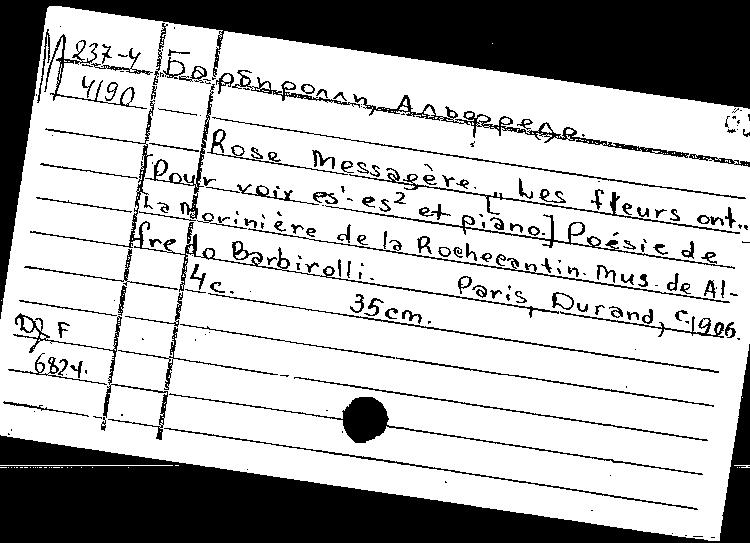 М 237-4
4190
Барбиролли, Альфредо.
Rose Messagère. „Les fleurs ont...
[Pour voix es¹-es² et piano.] Poésie de
La Morinière de la Rochecantin. Mus. de Al-
fredo Barbirolli. Paris, Durand, c.1906.
4c. 35cm.
D & F
6824.